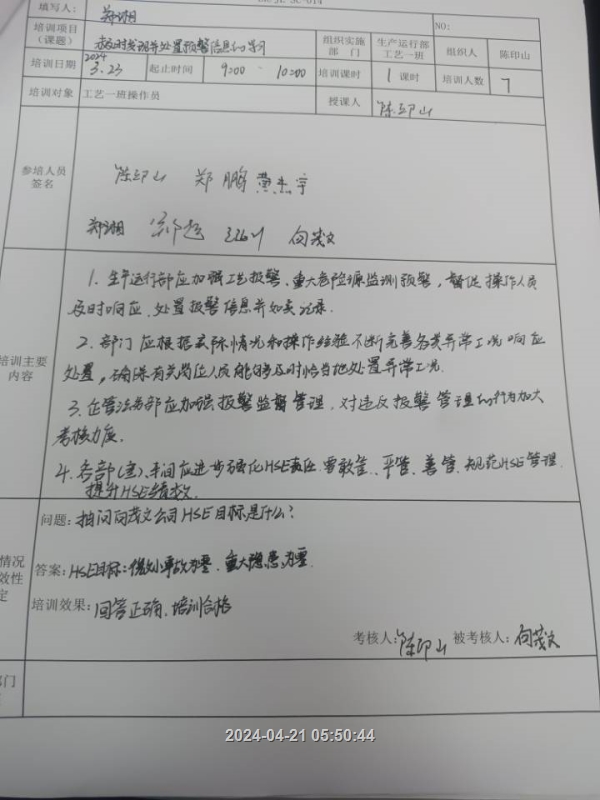 填写人: 郑湘 NO:
培训项目(课题) 及时发现并处置预警信息的学习 组织实施部门 生产运行部工艺一班 组织人 陈印山
培训日期 2024 3.23 起止时间 9:00 - 10:00 培训课时 1课时 培训人数 7
培训对象 工艺一班操作员 授课人 陈印山
参培人员签名
陈印山 郑鹏
郑湘 向茂文
培训主要内容
1. 生产运行部应加强工艺报警、重大危险源监测预警,督促操作人员
及时响应、处置报警信息并如实记录.
2. 部门应根据实际情况和操作经验不断完善各类异常工况响应
处置,确保有关岗位人员能够及时恰当地处置异常工况.
3. 企管法务部应加强报警监督管理,对违反报警管理的行为加大
考核力度.
4. 各部(室)、车间应进步强化HSE责任.要敢管、严管、善管.规范HSE管理.
提升HSE绩效.
情况
效性
定
问题: 抽问向茂文公司HSE目标是什么?
答案: HSE目标: 事故为零、重大隐患为零.
培训效果: 回答正确、培训合格
考核人: 陈印山 被考核人: 向茂文
部门
2024-04-21 05:50:44